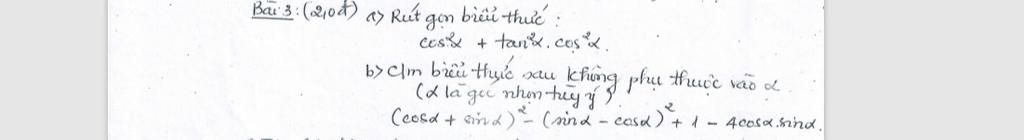 Bài 3: (2,0đ) a) Rút gọn biểu thức :
cos²α + tan²α. cos²α.
b) C/m biểu thức sau không phụ thuộc vào α
(α là góc nhọn tùy ý)
(cosα + sinα)² - (sinα - cosα)² + 1 - 4cosα.sinα.